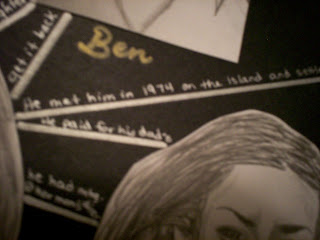 get it back
Ben
He met him in 1974 on the island and
He paid for his dad's
he had
her mom